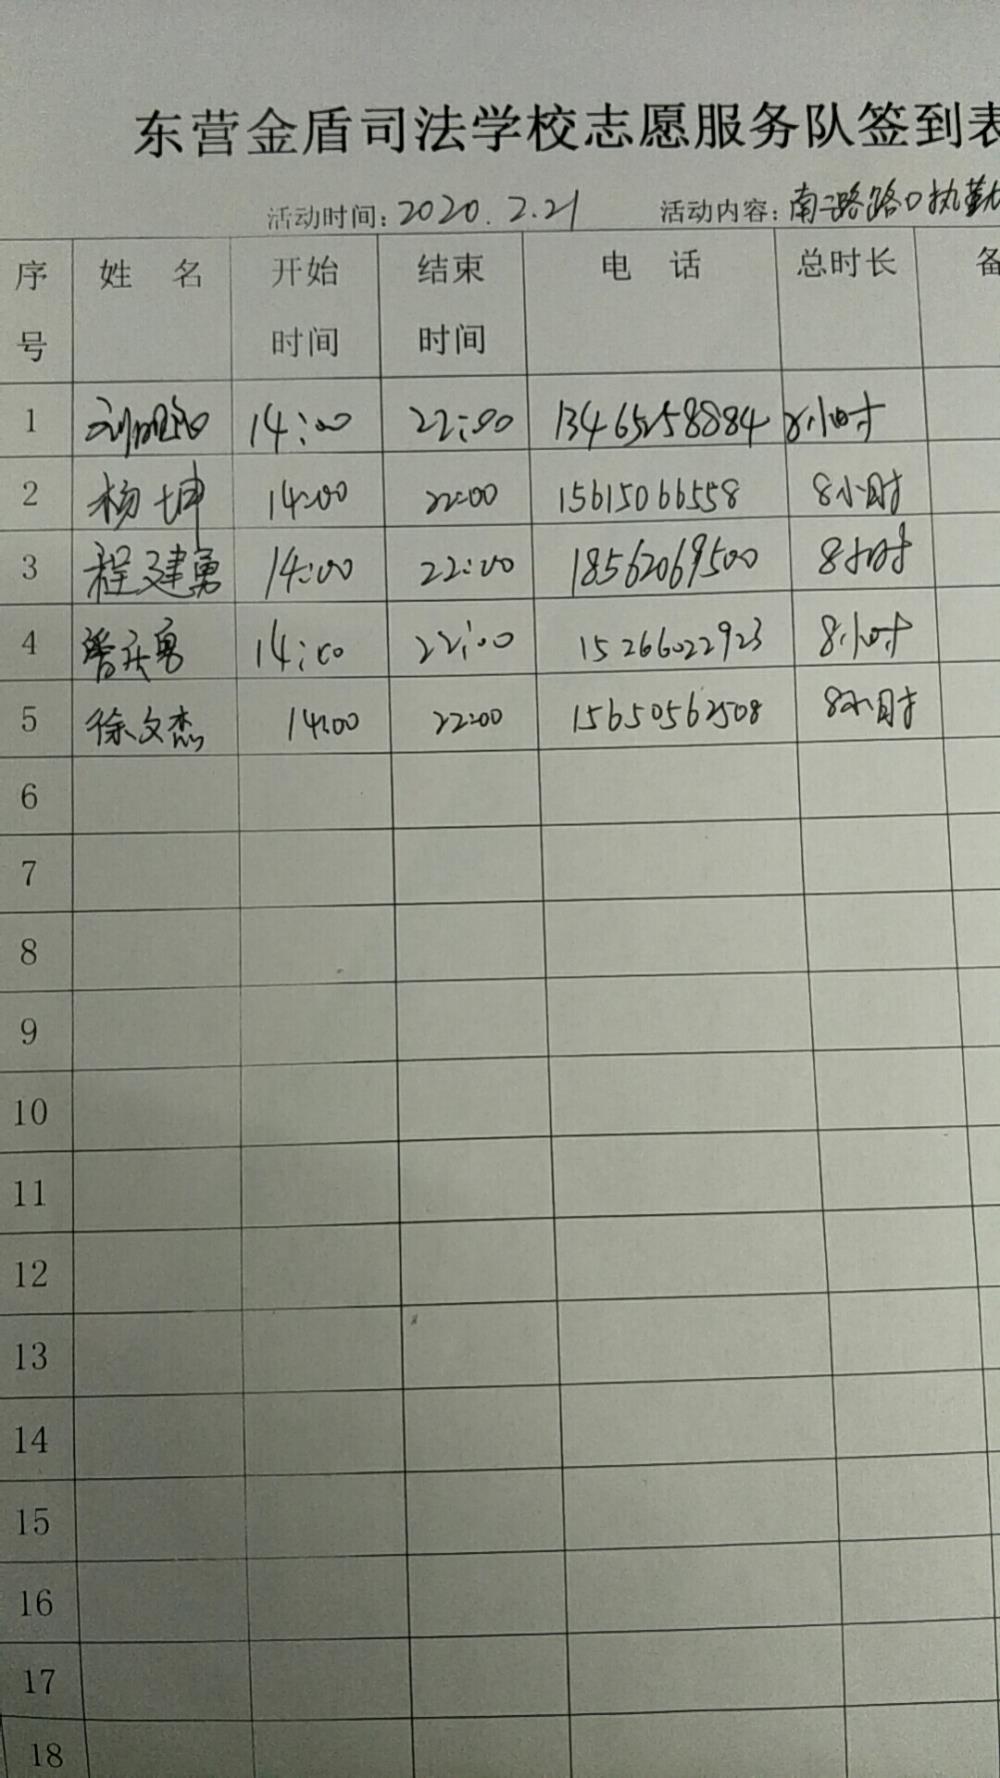 东营金盾司法学校志愿服务队签到表
活动时间：2020.2.21 活动内容：南二路路口执勤
序号 姓名 开始时间 结束时间 电话 总时长 备
1 14:00 22:00 13465258884 8小时
2 杨坤 14:00 22:00 15615066558 8小时
3 程建勇 14:00 22:00 18562069500 8小时
4 14:00 22:00 15266022923 8小时
5 徐文杰 14:00 22:00 15650562508 8小时
6
7
8
9
10
11
12
13
14
15
16
17
18